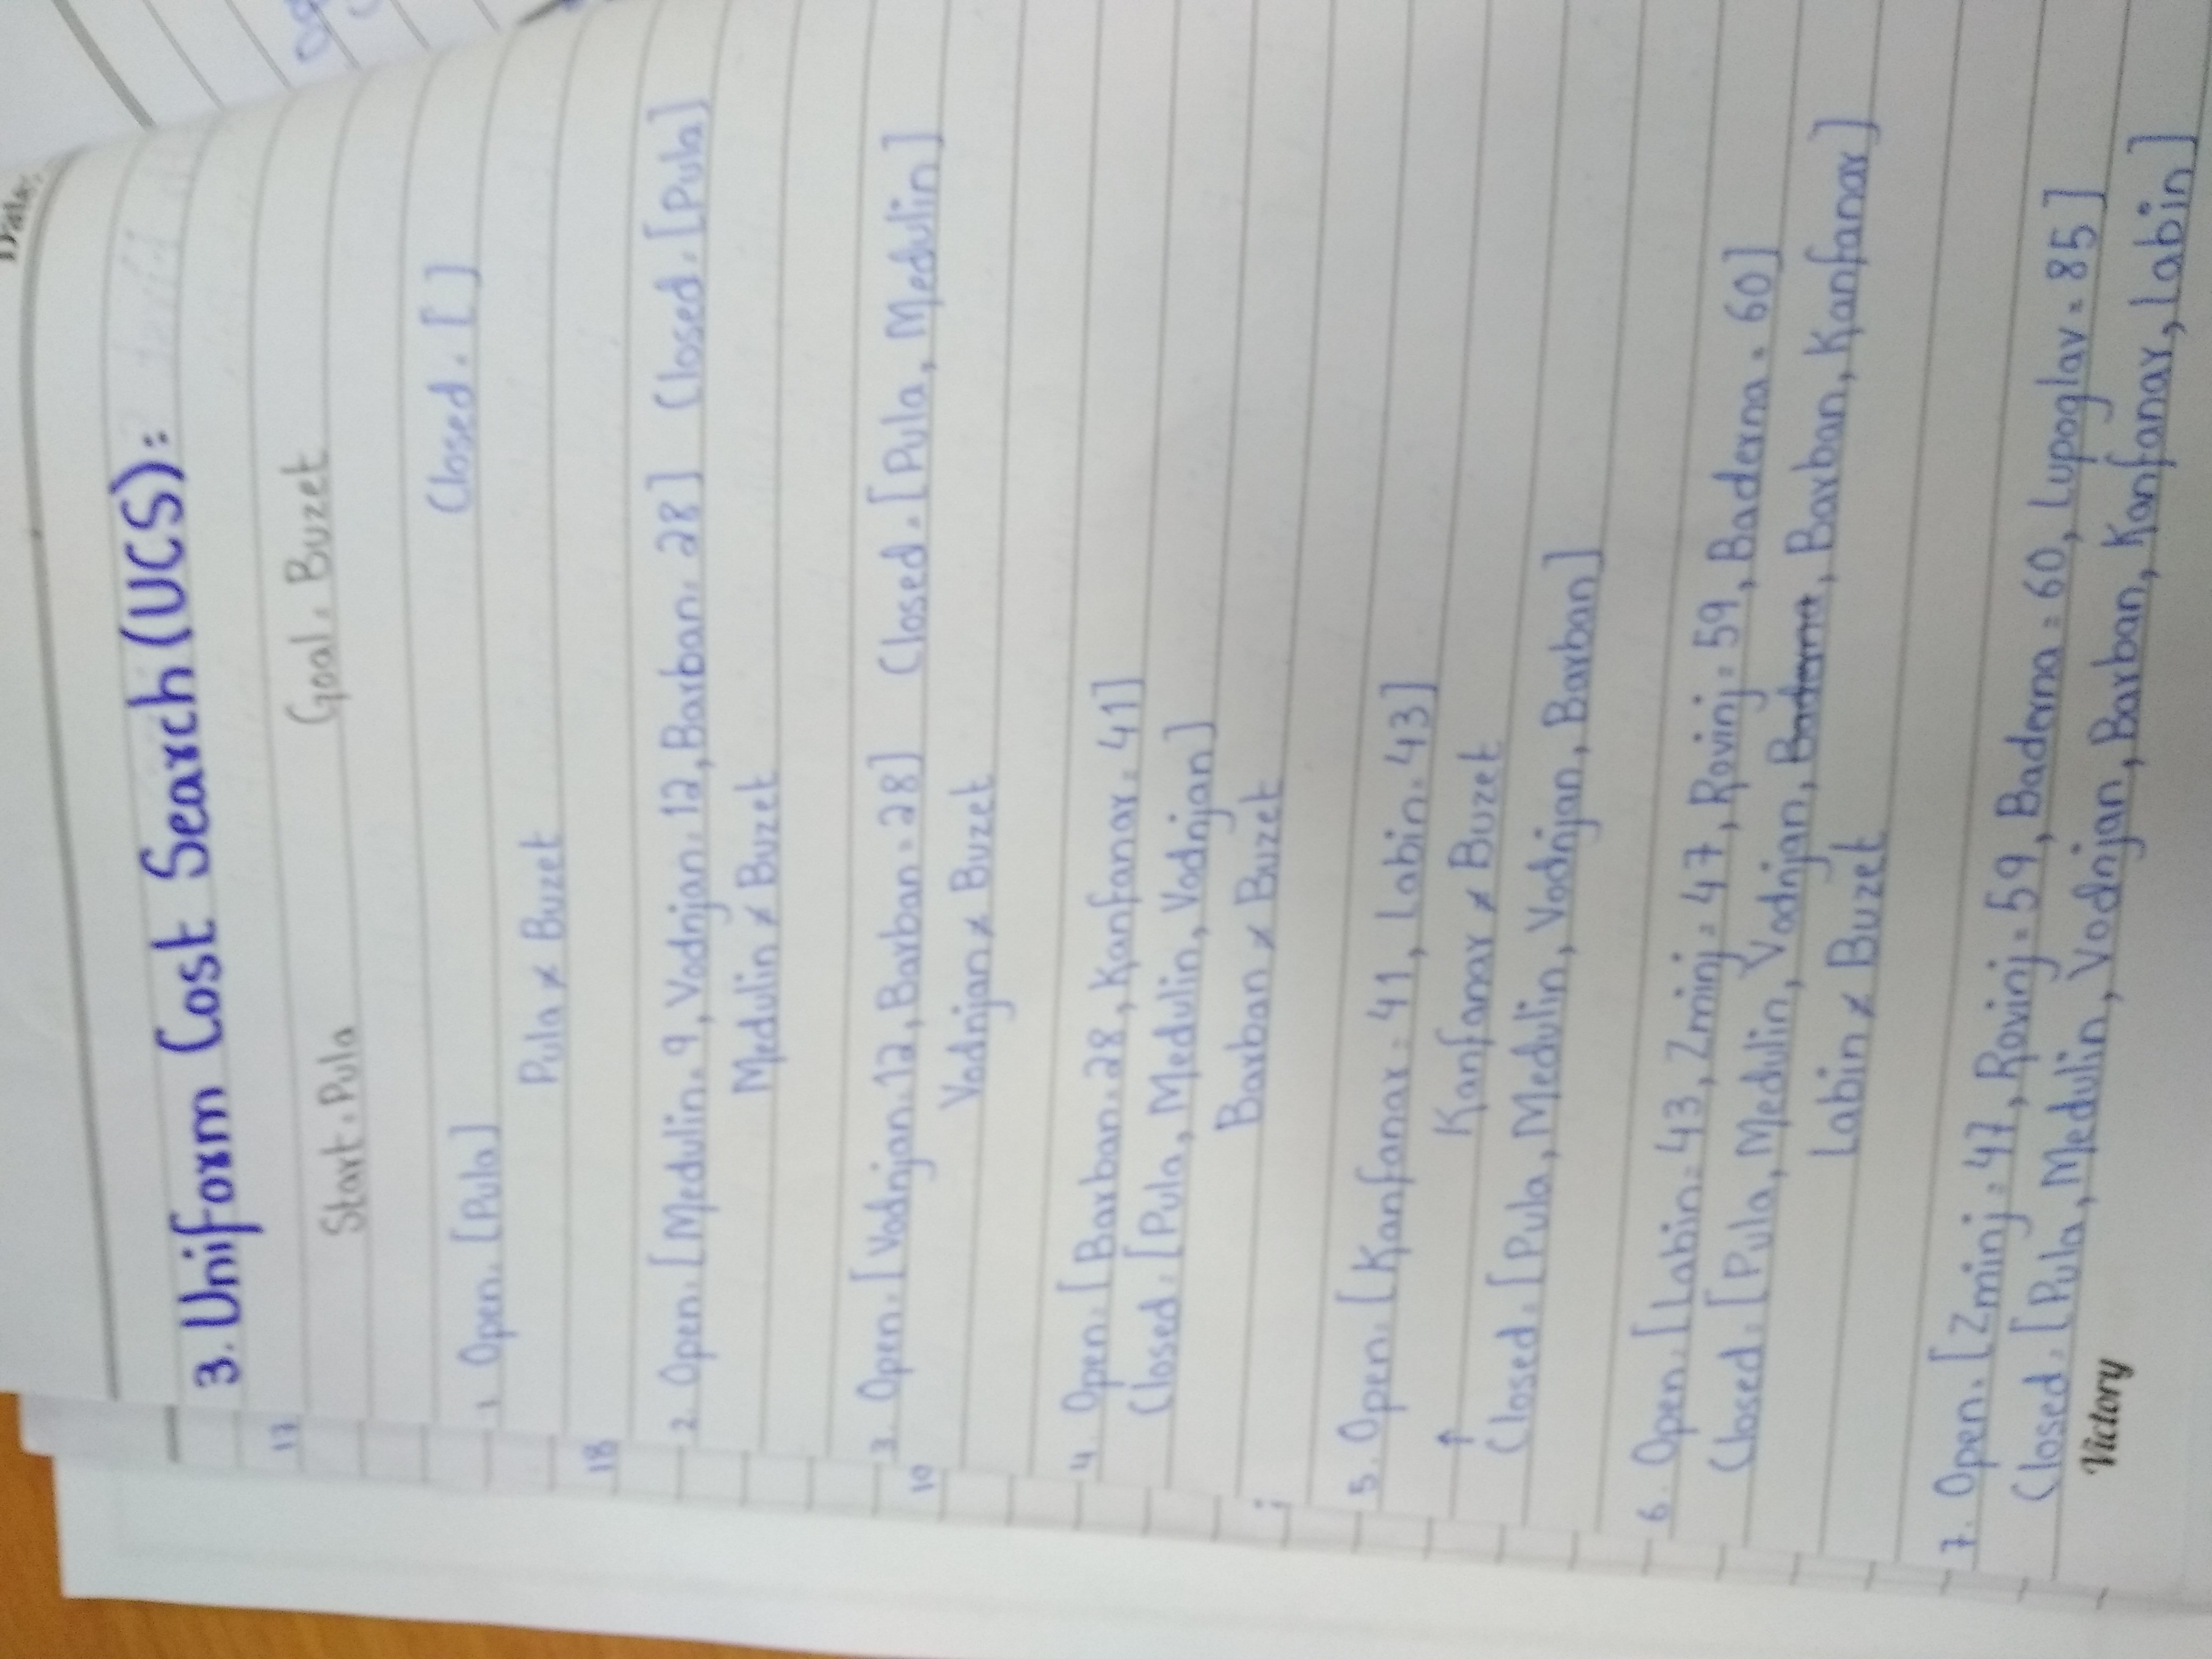 Date:
3. Uniform Cost Search (UCS):
17
Start = Pula Goal = Buzet
1. Open = [Pula] Closed = [ ]
Pula ≠ Buzet
18
2. Open = [Medulin = 9, Vodnjan = 12, Barban = 28] Closed = [Pula]
Medulin ≠ Buzet
3. Open = [Vodnjan = 12, Barban = 28] Closed = [Pula, Medulin]
19
Vodnjan ≠ Buzet
4. Open = [Barban = 28, Kanfanar = 41]
Closed = [Pula, Medulin, Vodnjan]
Barban ≠ Buzet
5. Open = [Kanfanar = 41, Labin = 43]
↑ Kanfanar ≠ Buzet
Closed = [Pula, Medulin, Vodnjan, Barban]
6. Open = [Labin = 43, Zminj = 47, Rovinj = 59, Baderna = 60]
Closed = [Pula, Medulin, Vodnjan, Baderna, Barban, Kanfanar]
Labin ≠ Buzet
7. Open = [Zminj = 47, Rovinj = 59, Baderna = 60, Lupoglav = 85]
Closed = [Pula, Medulin, Vodnjan, Barban, Kanfanar, Labin]
Victory